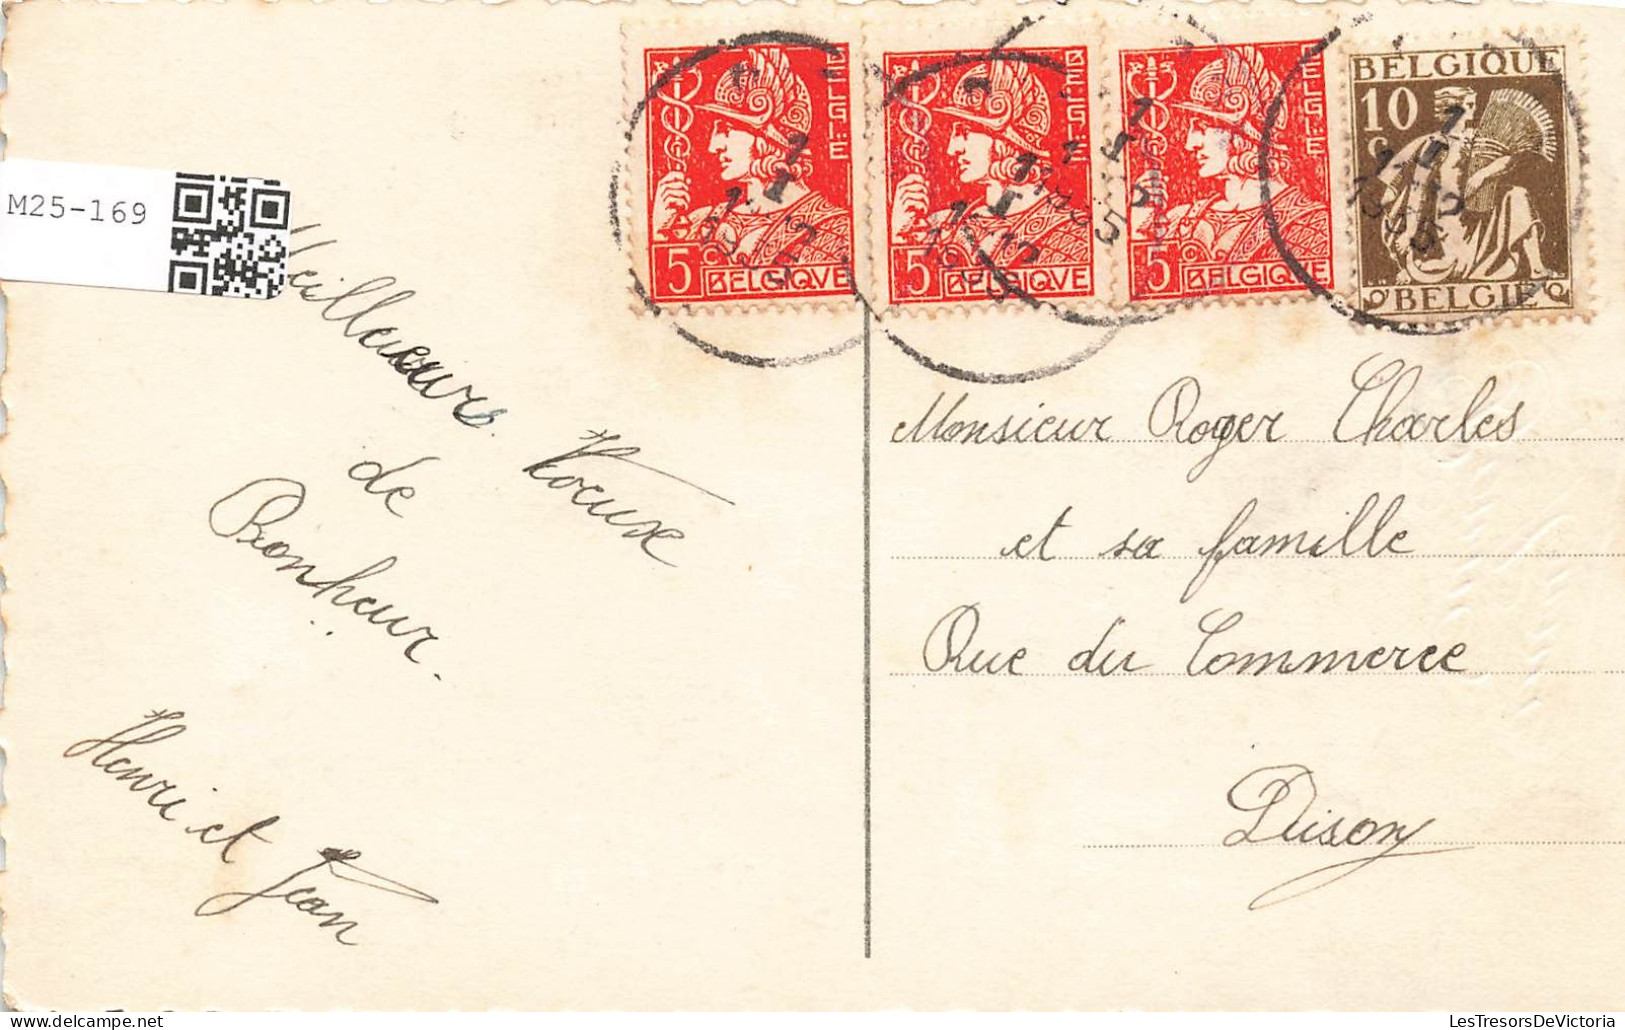 M25-169
BELGIË
5c BELGIQUE
BELGIË
5c BELGIQUE
BELGIË
5c BELGIQUE
BELGIQUE
10
c
BELGIË
1 I
11-12
1935
Meilleurs Voeux
de
Bonheur.
Henri et Jean
Monsieur Roger Charles
et sa famille
Rue du Commerce
Dison
LesTresorsDeVictoria